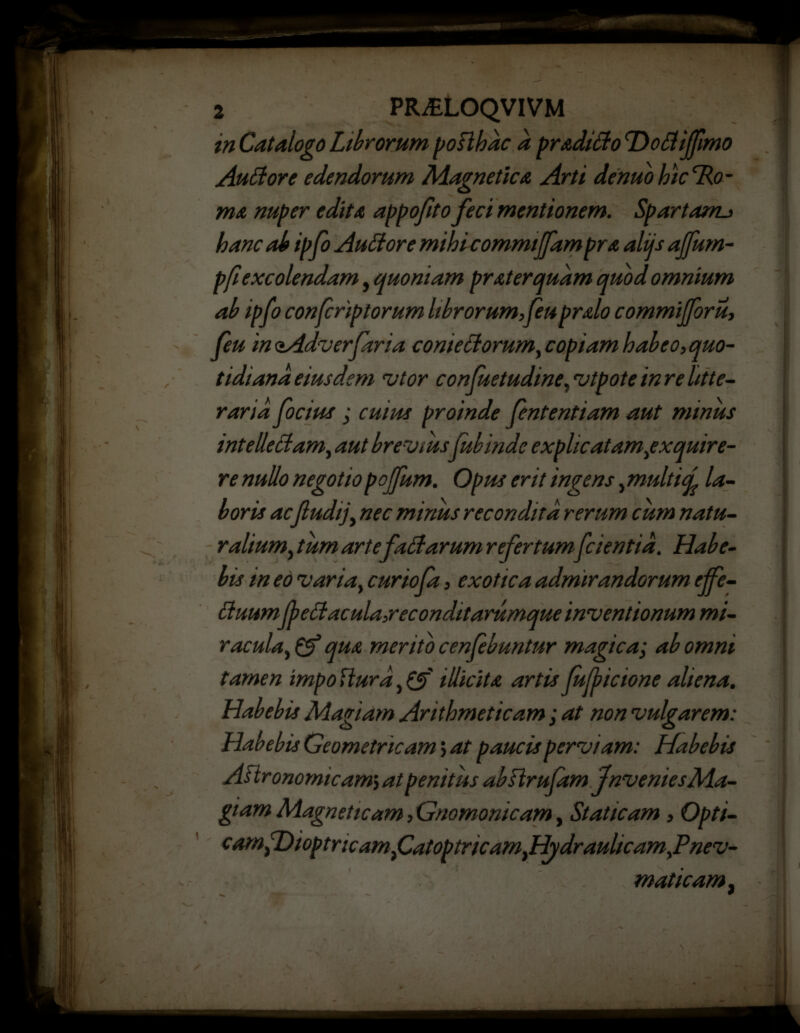 2 PRÆLOQVIVM
in Catalogo Librorum posthàc à prædicto Doctissimo
Auctore edendorum Magneticæ Arti denuò hìc Ro-
mæ nuper editæ apposito feci mentionem. Spartam
hanc ab ipso Auctore mihi commissam præ alijs assum-
psi excolendam, quoniam præterquàm quòd omnium
ab ipso conscriptorum librorum, seu prælo commissorū,
seu in Adversaria coniectorum, copiam habeo, quo-
tidianâ eiusdem vtor consuetudine, vtpote in re litte-
rariâ socius; cuius proinde sententiam aut minùs
intellectam, aut breviùs subinde explicatam, exquire-
re nullo negotio possum. Opus erit ingens, multiq; la-
boris ac studij, nec minùs reconditâ rerum cùm natu-
ralium, tùm arte factarum refertum scientiâ. Habe-
bis in eò varia, curiosa, exotica admirandorum effe-
ctuum spectacula, reconditarúmque inventionum mi-
racula, & quæ meritò censebuntur magica; ab omni
tamen imposturâ, & illicitæ artis suspicione aliena.
Habebis Magiam Arithmeticam; at non vulgarem:
Habebis Geometricam; at paucis perviam: Habebis
Astronomicam; at penitùs abstrusam Invenies Ma-
giam Magneticam, Gnomonicam, Staticam, Opti-
cam, Dioptricam, Catoptricam, Hydraulicam, Pnev-
maticam,